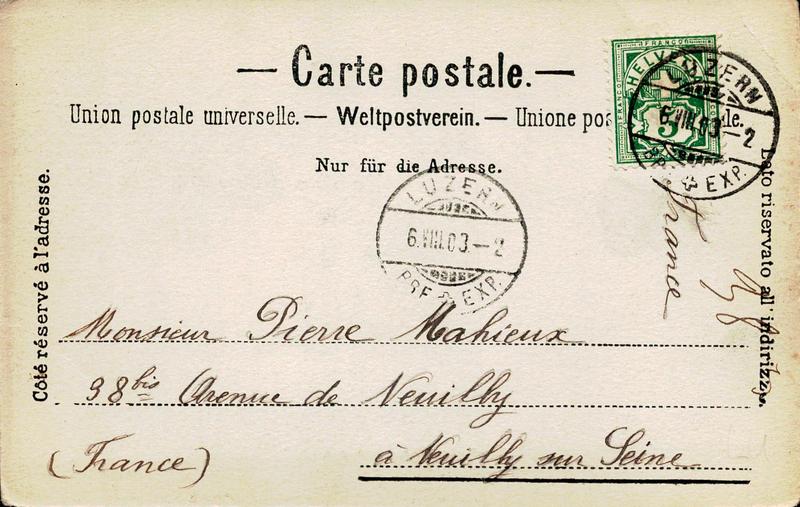 — Carte postale. —
Union postale universelle. — Weltpostverein. — Unione pos le.
Nur für die Adresse.
FRANCO
HELVETIA
FRANCO
5
LUZERN
6.VIII.03.–2
EXP.
LUZERN
6.VIII.03.–2
BRF. EXP.
Côté réservé à l'adresse.
Lato riservato all' indirizzo.
France
Monsieur Pierre Mahieux
38bis Avenue de Neuilly
à Neuilly sur Seine
(France)